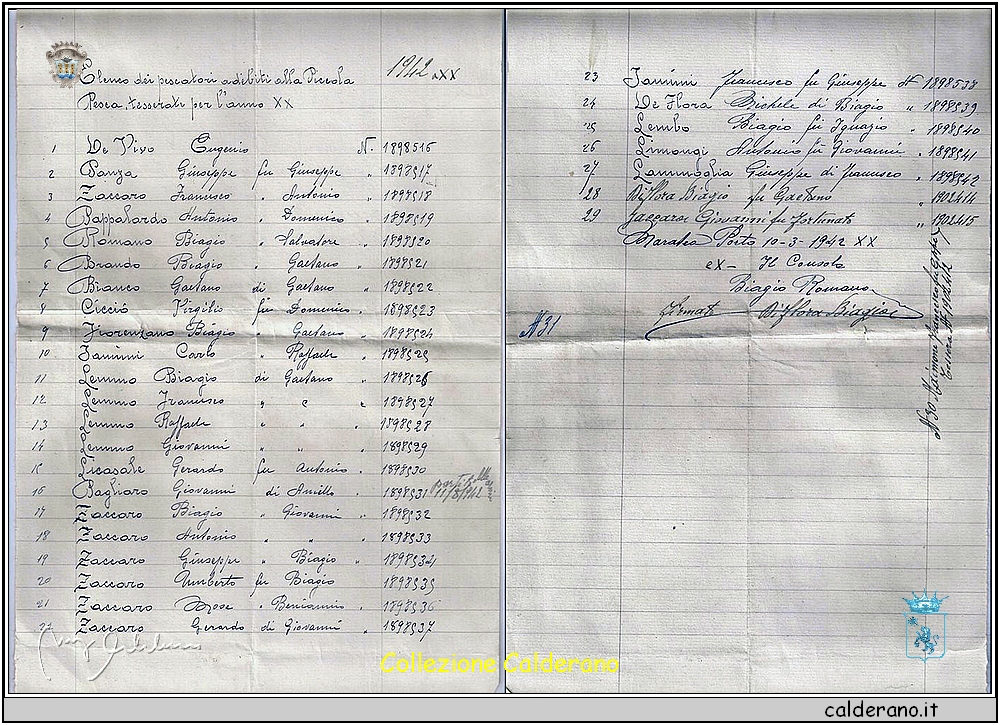 Elenco dei pescatori adibiti alla Piccola
Pesca tesserati per l'anno XX
1942 XX
1 De Vivo Eugenio N. 1898516
2 Panza Giuseppe fu Giuseppe " 1898517
3 Zaccaro Francesco " Antonio " 1898518
4 Pappalardo Antonio " Domenico " 1898519
5 Romano Biagio " Salvatore " 1898520
6 Brando Biagio " Gaetano " 1898521
7 Bianco Gaetano di Gaetano " 1898522
8 Cicció Virgilio fu Domenico " 1898523
9 Fiorenzano Biagio " Gaetano " 1898524
10 Iannini Carlo " Raffaele " 1898525
11 Lemmo Biagio di Gaetano " 1898526
12 Lemmo Francesco " " " 1898527
13 Lemmo Raffaele " " " 1898528
14 Lemmo Giovanni " " " 1898529
15 Licasale Gerardo fu Antonio " 1898530
16 Pagliaro Giovanni di Aniello " 1898531
11/8/1942
17 Zaccaro Biagio " Giovanni " 1898532
18 Zaccaro Antonio " " " 1898533
19 Zaccaro Giuseppe " Biagio " 1898534
20 Zaccaro Umberto fu Biagio 1898535
21 Zaccaro Mose " Beniamino " 1898536
22 Zaccaro Gerardo di Giovanni " 1898537
23 Iannini Francesco fu Giuseppe N 1898538
24 De Flora Michele di Biagio " 1898539
25 Lembo Biagio fu Ignazio " 1898540
26 Limongi Antonio fu Giovanni " 1898541
27 Lammoglia Giuseppe di Francesco " 1898542
28 Di Flora Biagio fu Gaetano " 1902414
29 Zaccaro Giovanni fu Fortunato " 1902415
Maratea Porto 10-3-1942 XX
ex- Il Console
Biagio Romano
Firmato Di Flora Biagio
N 31
N 30 Francesco fu
Tessera N
Collezione Calderano
calderano.it